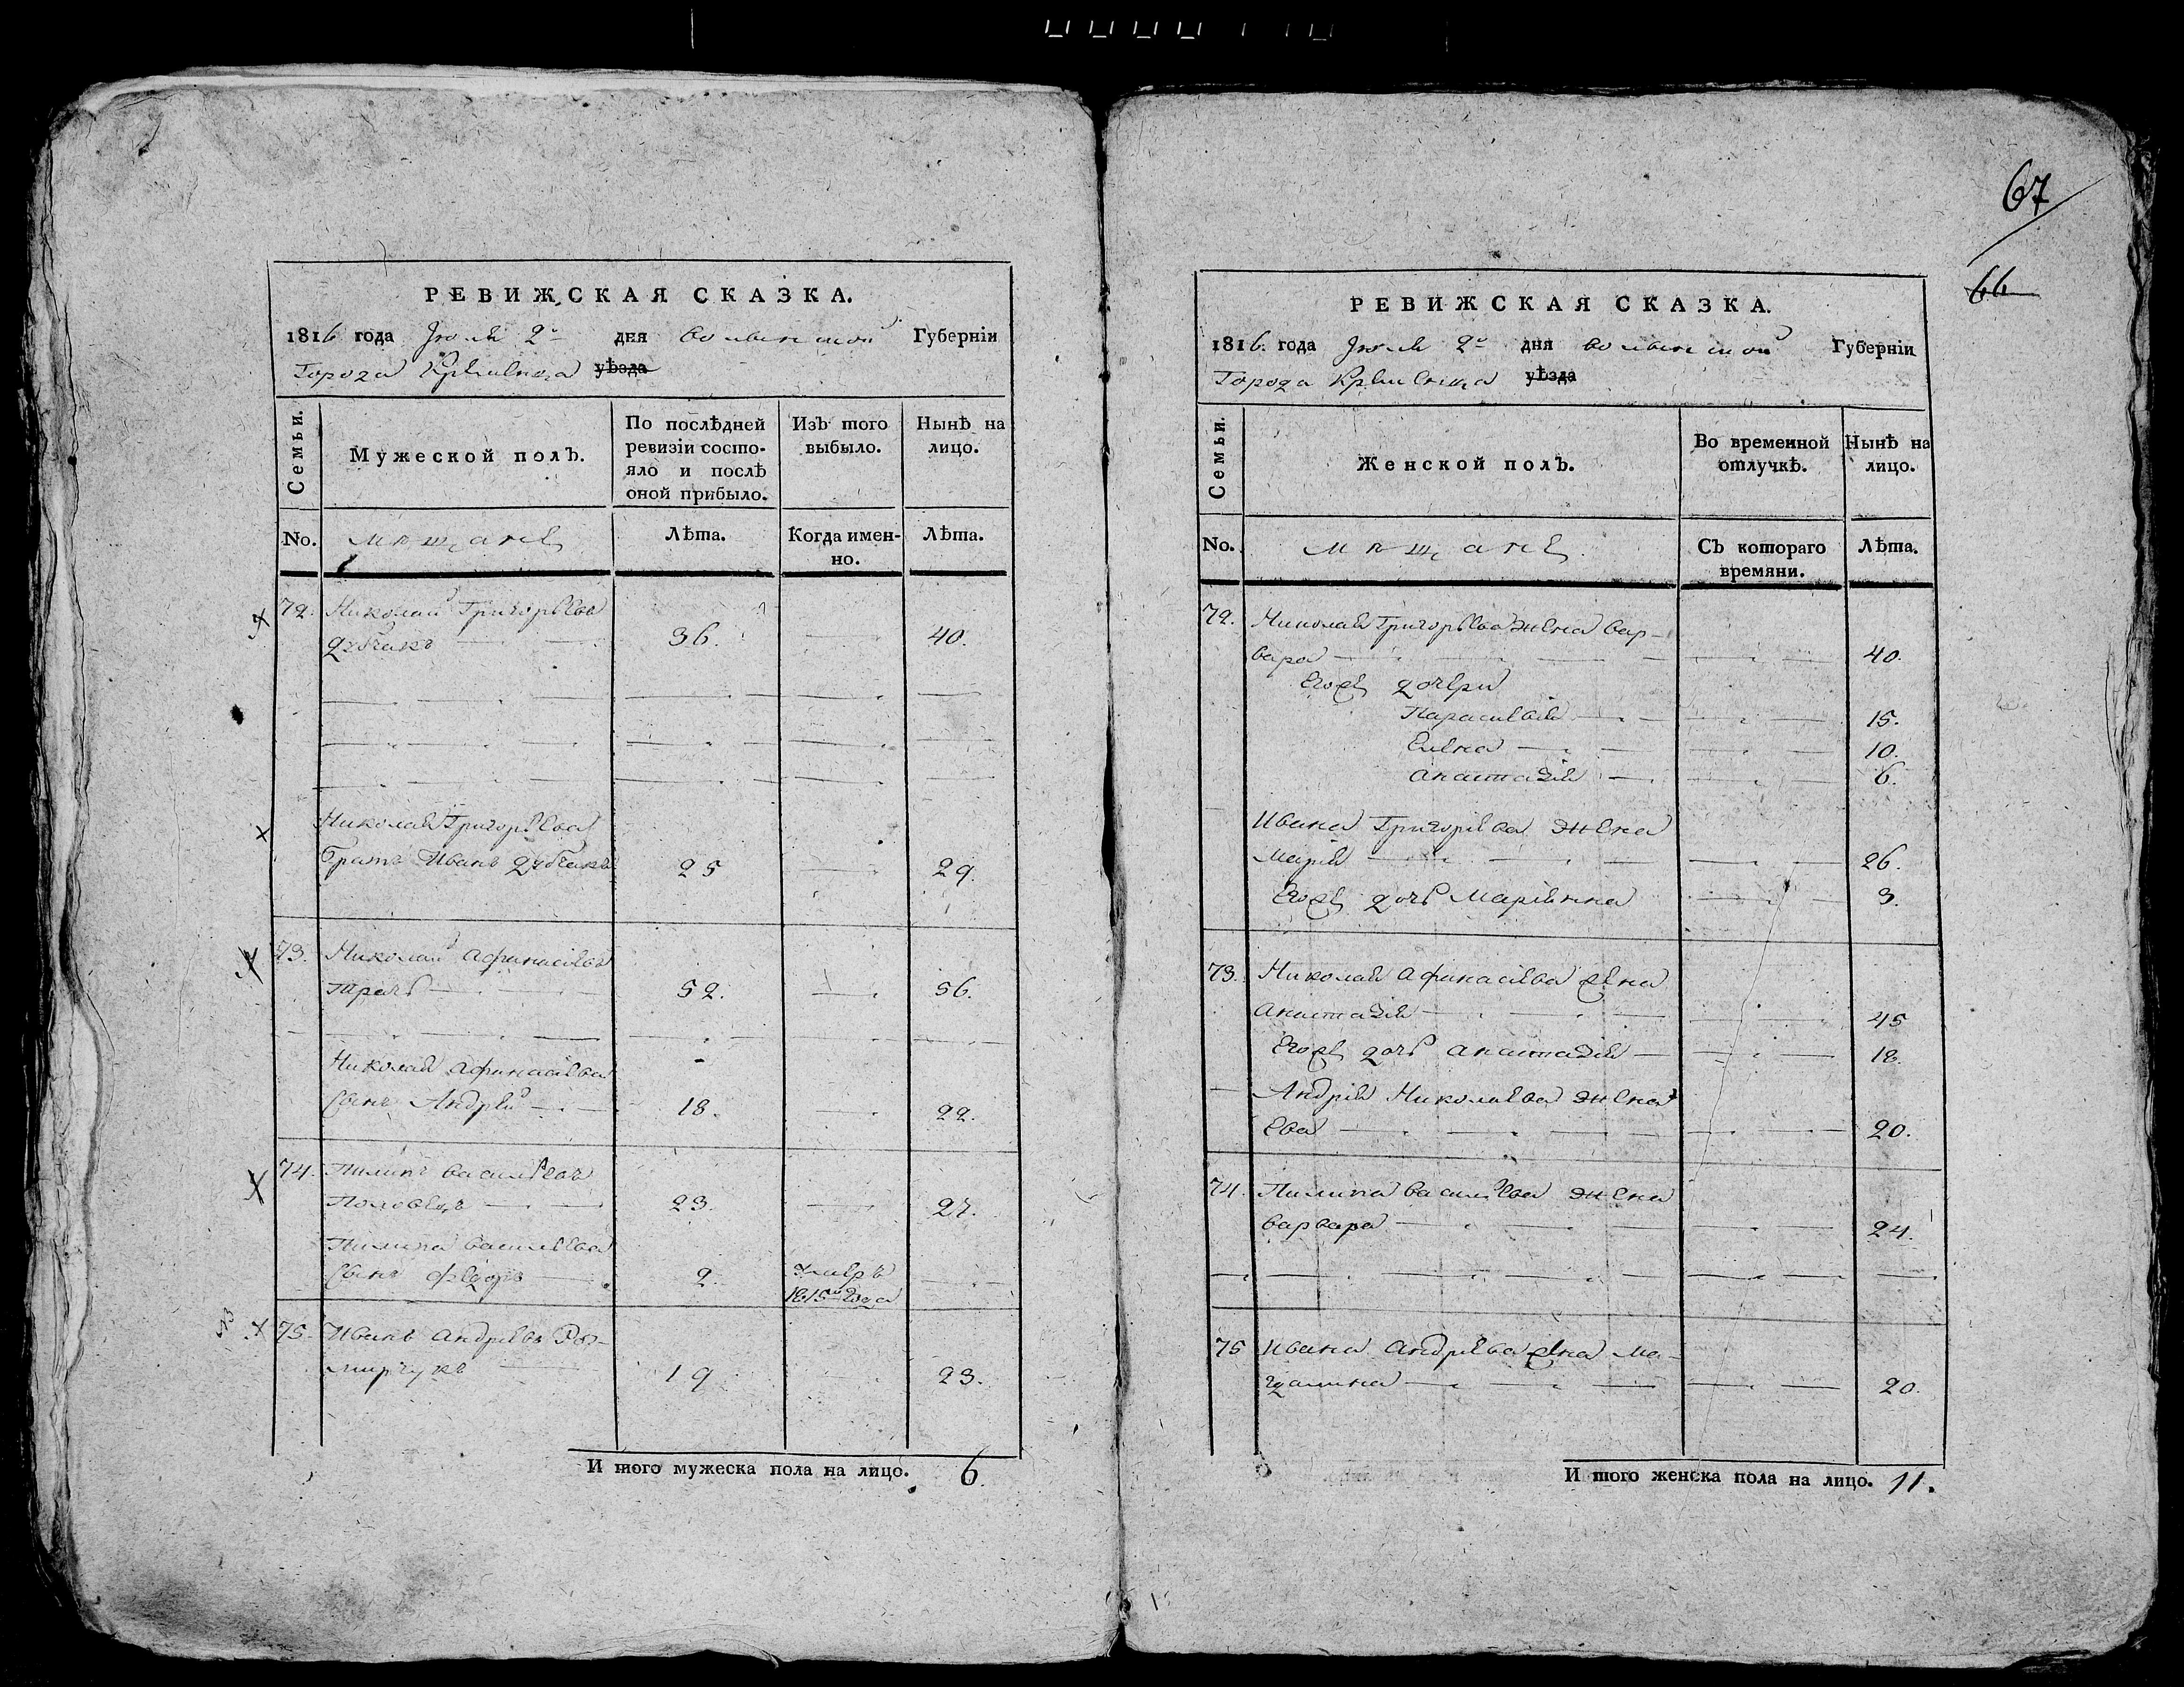 67
66
РЕВИЖСКАЯ СКАЗКА.
1816 года Июля 2го дня Волынской Губерніи
Города Кременца уѣзда
Семьи.
Мужеской полъ.
По послѣдней ревизіи состо-
яло и послѣ
оной прибыло.
Изъ того
выбыло.
Нынѣ на
лицо.
No. мѣщане
Лѣта.
Когда имен-
но.
Лѣта.
72. Николай Григорьевъ
дубчакъ 36. 40.
Николая Григорьева
братъ Иванъ дубчакъ 25 29.
73. Николай Афанасьевъ
52. 56.
Николая Афанасьева
сынъ Андрей 18. 22.
74. Пилипъ Васильевъ
Половецъ 23. 27.
Пилипа Васильева
сынъ Федоръ 2. умеръ
1815го года
75. Иванъ Андреевъ
19 23.
И того мужеска пола на лицо. 6.
РЕВИЖСКАЯ СКАЗКА.
1816. года Июля 2го дня Волынской Губерніи
Города Кременца уѣзда
Семьи.
Женской полъ.
Во временной
отлучкѣ.
Нынѣ на
лицо.
No. мѣщане
Съ котораго
времяни.
Лѣта.
72. Николая Григорьева жена Вар-
вара 40.
Егоже дочери
Параскевія 15.
Елена 10.
Анастазія 6.
Ивана Григорьева жена
Марія 26.
Егоже дочь Маріянна 3.
73. Николая Афанасьева жена
Анастазія 45
Егоже дочь Анастазія 18.
Андрея Николаева жена
Ева 20.
74. Пилипа Васильева жена
Варвара 24.
75 Ивана Андреева жена Ма-
гдалина 20.
И того женска пола на лицо. 11.